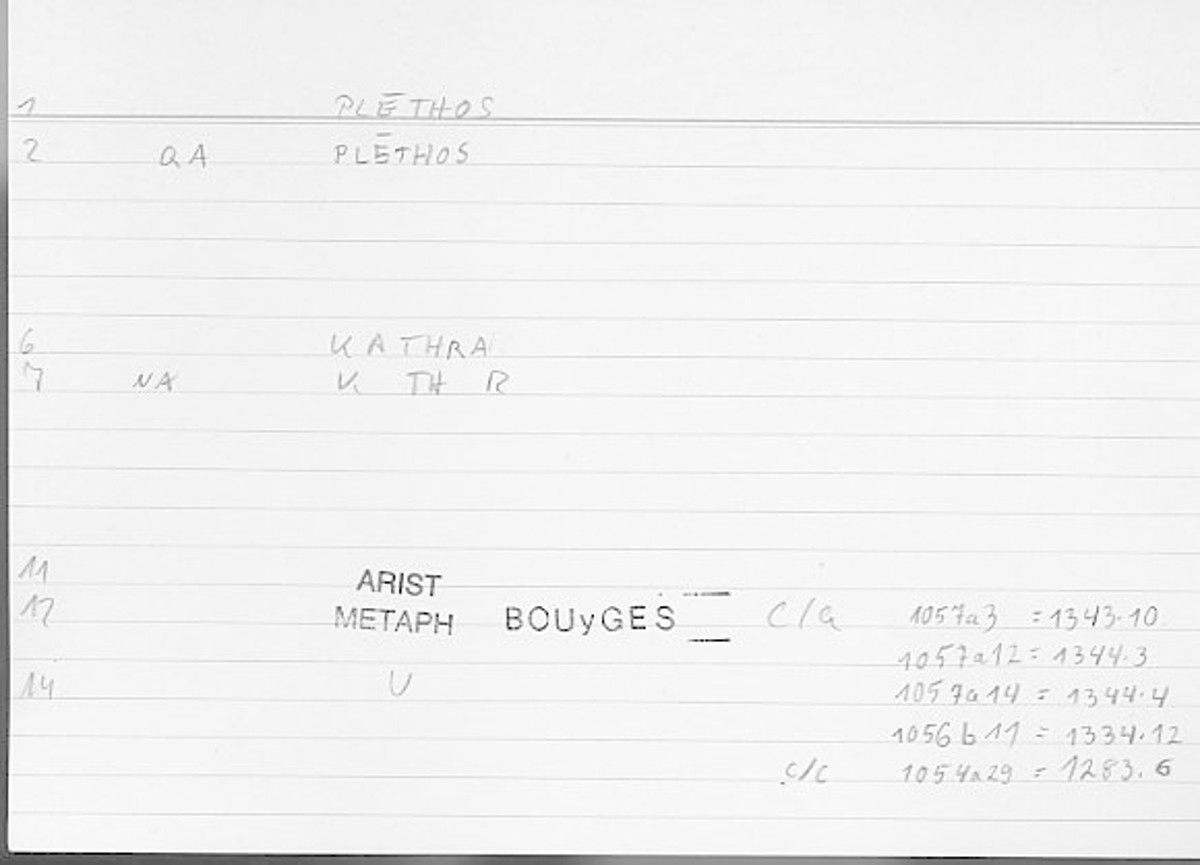 1 PLĒTHOS
2 QA PLĒTHOS
6 KATHRA
7 NA K TH R
11 ARIST
12 METAPH BOUyGES C/a 1057a3 = 1343.10
1057a12 = 1344.3
14 U 1057a14 = 1344.4
1056b11 = 1334.12
c/c 1054a29 = 1283.6